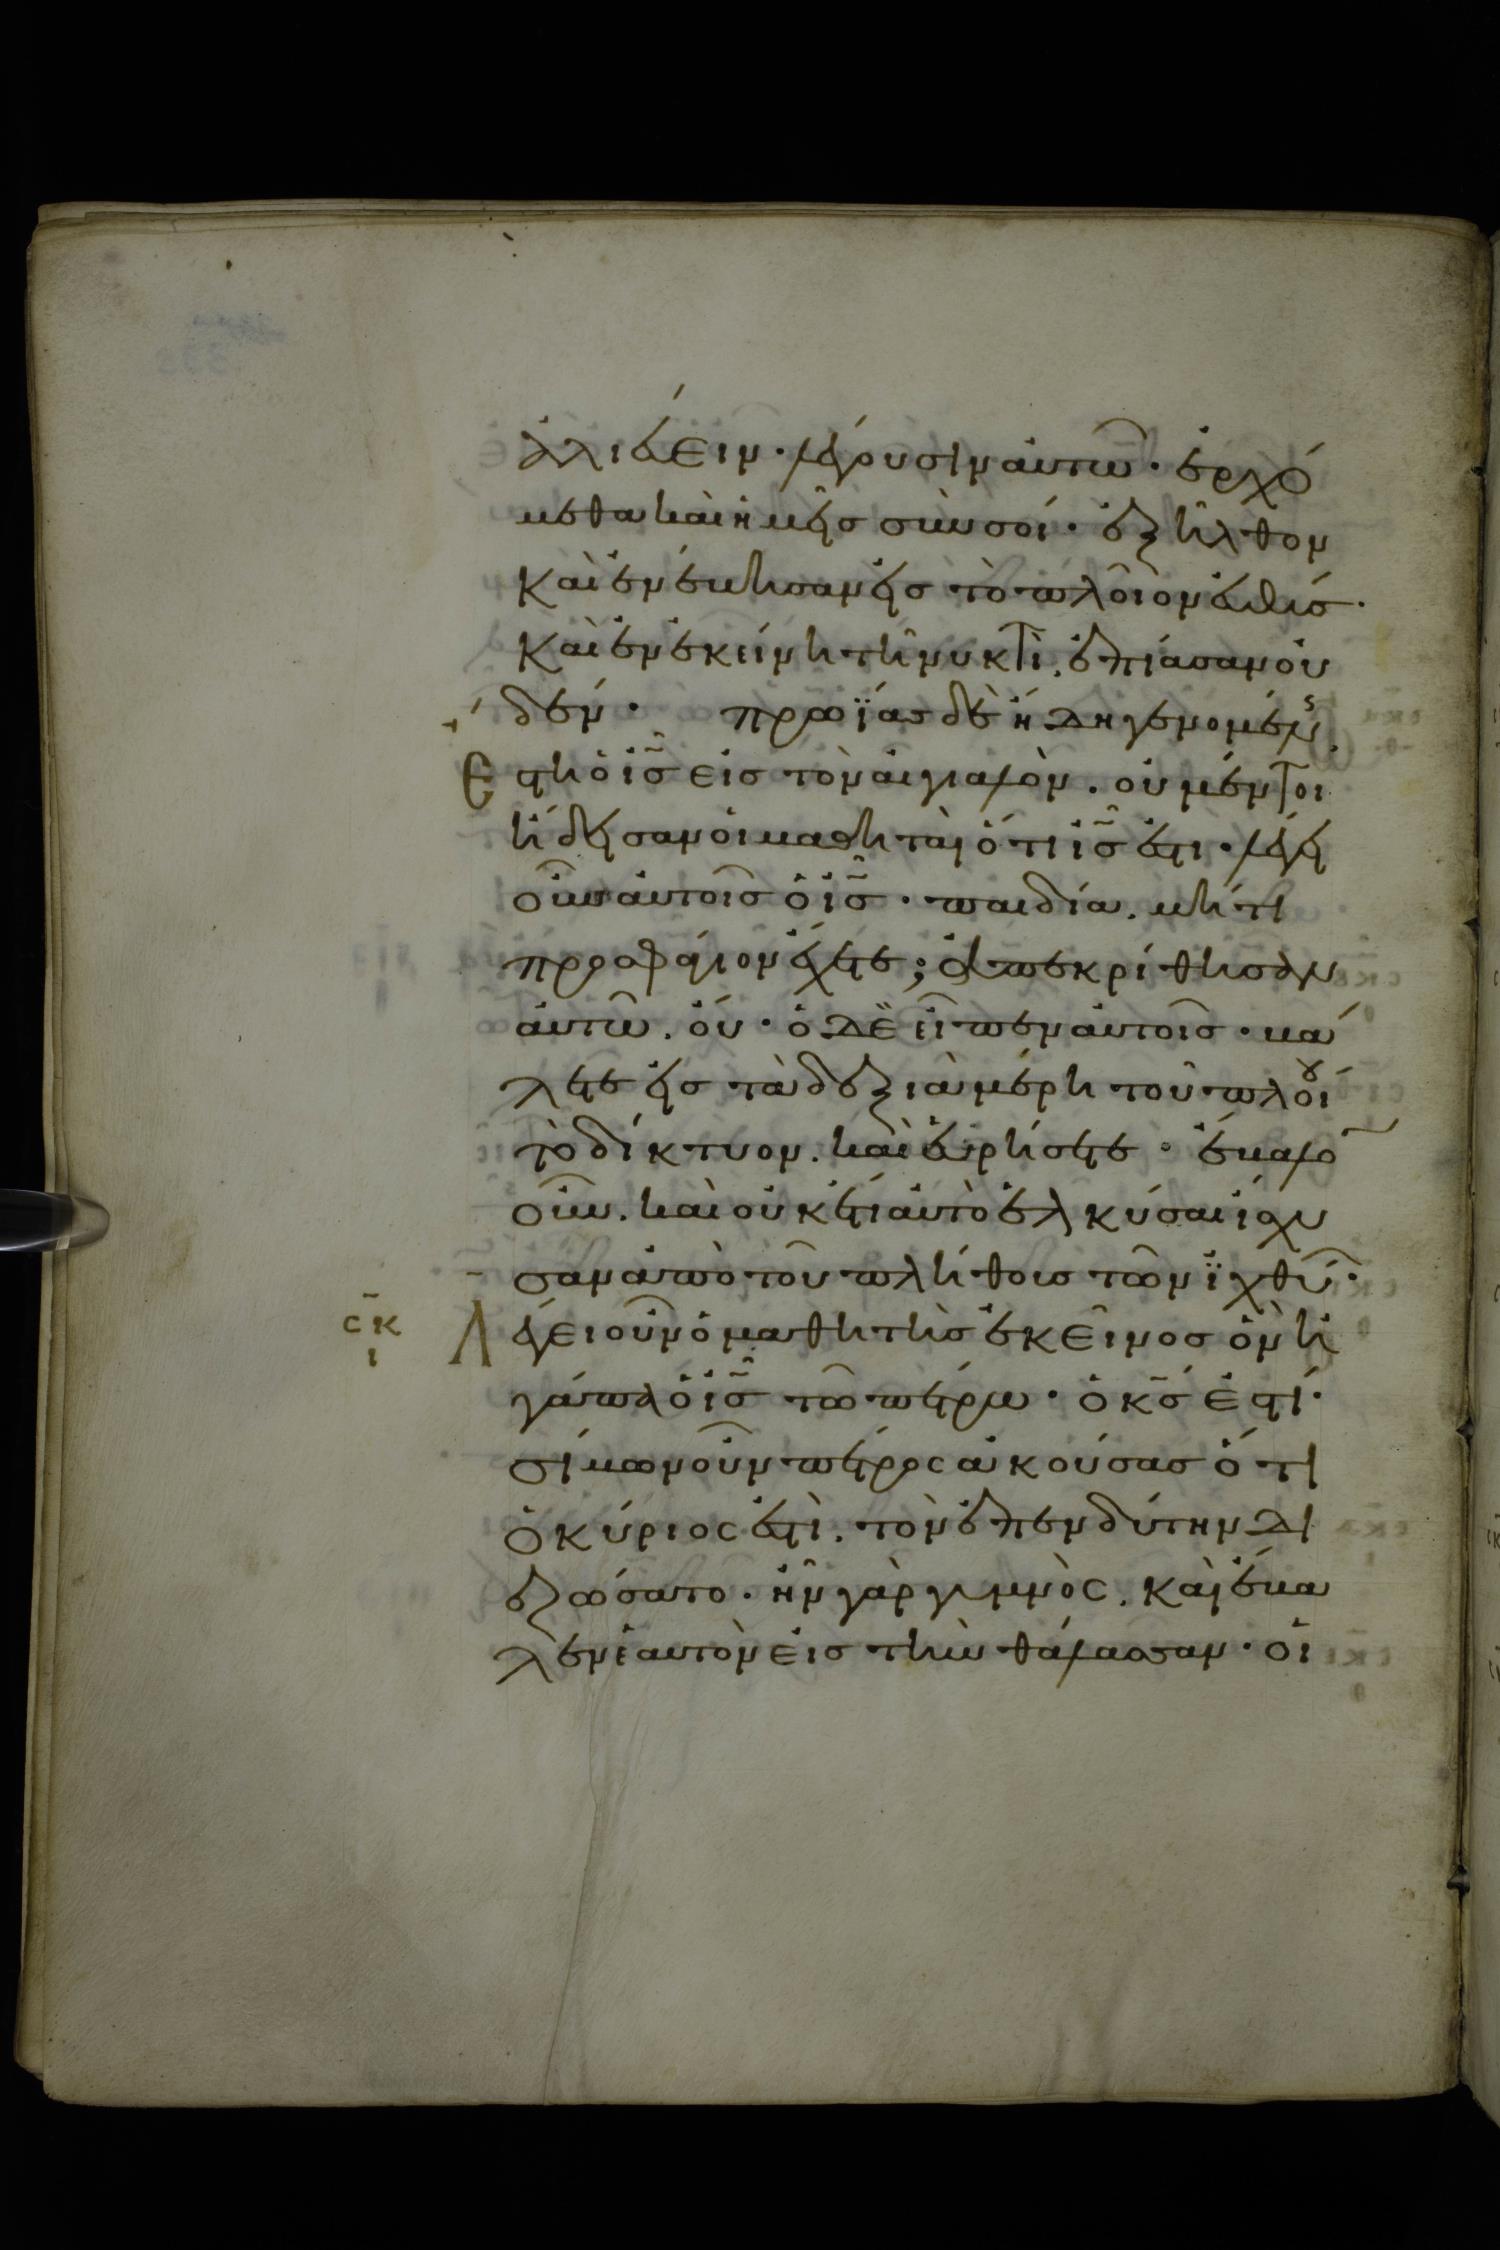 ἁλιεύειν· λέγουσιν αὐτῶ· ἐρχό
μεθα καὶ ἡμεῖς σὺν σοί· ἐξῆλθον
καὶ ἐνέβησαν εἰς τὸ πλοῖον εὐθύς·
καὶ ἐν ἐκείνη τῆ νυκτὶ, ἐπίασαν οὐ
δέν· πρωΐας δὲ ἤδη γενομένης
Ἔστη ὁ ἰς εἰς τὸν αἰγιαλὸν. οὐ μέντοι
ἤδεισαν οἱ μαθηταὶ ὅτι ἰς ἐστι· λέγει
οὖν αὐτοῖς ὁ ἰς· παιδία. μή τι
προσφάγιον ἔχετε; ἀπεκρίθησαν
αὐτῶ. οὔ· ὁ δὲ εἶπεν αὐτοῖς· βά
λετε εἰς τὰ δεξιὰ μέρη τοῦ πλοίου
τὸ δίκτυον. καὶ εὑρήσετε· ἔβαλο
οὖν. καὶ οὐκέτι αὐτὸ ἑλκύσαι ἴσχυ
σαν ἀπὸ τοῦ πλήθους τῶν ἰχθύ·
σκ
ι
Λέγει οὖν ὁ μαθητὴς ἐκεῖνος ὃν ἠ
γάπα ὁ ἰς τῶ πέτρω· ὁ κς ἐστί·
σίμων οὖν πέτρος ἀκούσας ὅτι
ὁ κύριος ἐστὶ. τὸν ἐπενδύτην δι
εζώσατο· ἦν γὰρ γυμνὸς. καὶ ἔβα
λεν ἑαυτὸν εἰς τὴν θάλασσαν· οἱ